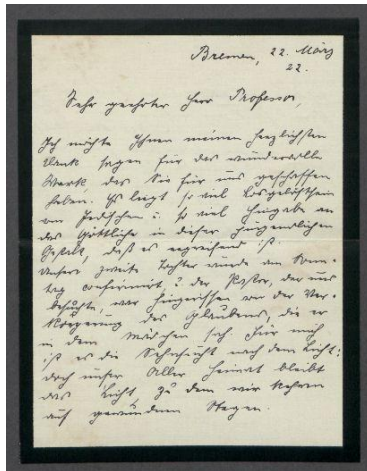 Bremen, 22. März
22.
Sehr geehrter Herr Professor,
Ich möchte Ihnen meinen herzlichsten
Dank sagen für das wundervolle
Werk, das Sie für uns geschaffen
haben. Es liegt so viel Losgelöstsein
vom Irdischen u. so viel Hingabe an
das Göttliche in dieser jugendlichen
Gestalt, daß es ergreifend ist.
Unsere zweite Tochter wurde am Sonn-
tag confirmirt u. der Pastor, der uns
besuchte, war hingerissen von der Ver-
körperung des Glaubens, die er
in dem Mädchen sah. Für mich
ist es die Sehnsucht nach dem Licht;
doch unser Aller Heimat bleibt
das Licht, zu dem wir kehren
auf gewundnen Stegen.